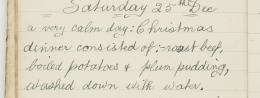 Saturday 25th Dec
a very calm day: Christmas
dinner consisted of :- roast beef,
boiled potatoes & plum pudding,
washed down with water.